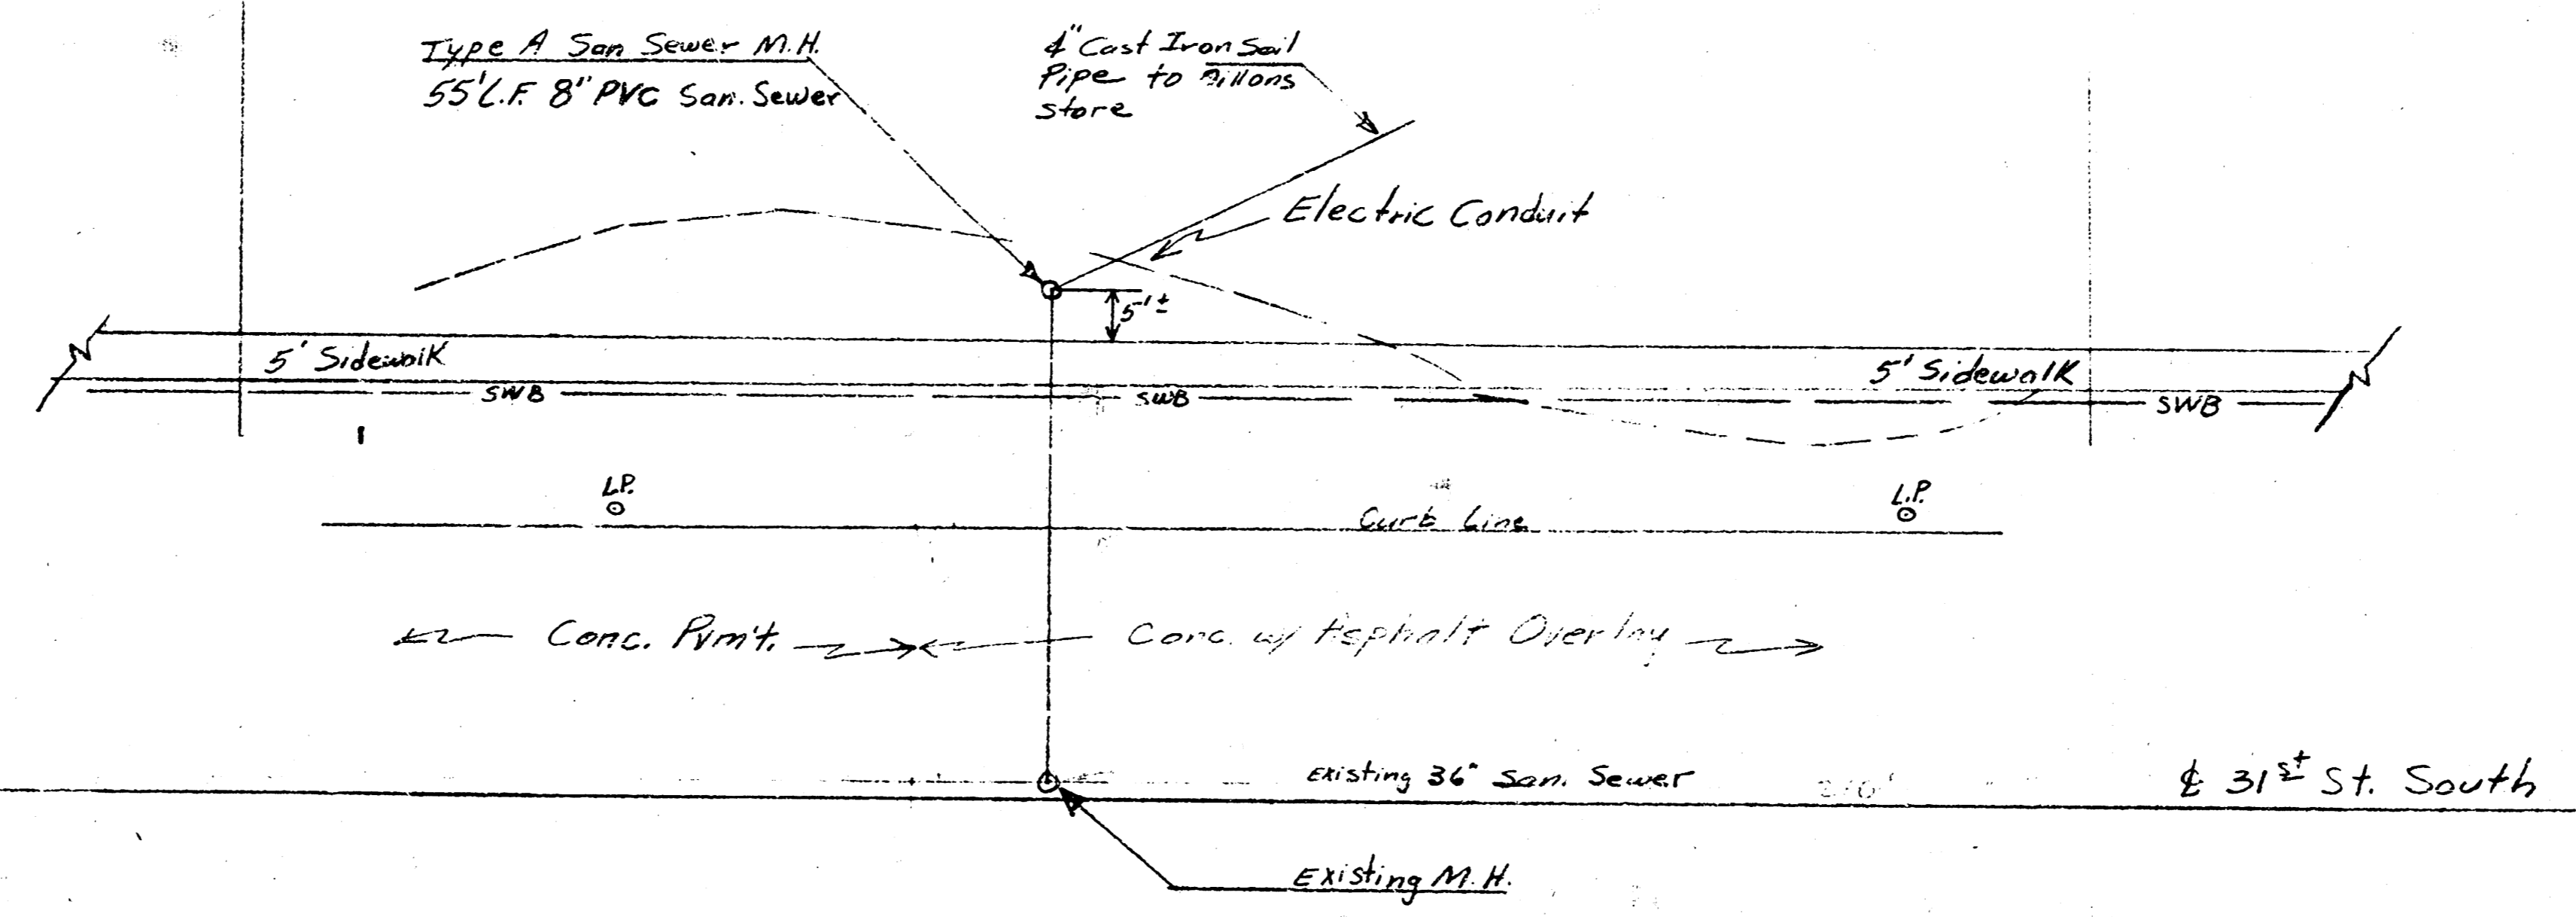 Type A San Sewer M.H.
55' L.F. 8" PVC San. Sewer
4" Cast Iron Soil
Pipe to Dillons
store
Electric Conduit
5'±
5' Sidewalk
5' Sidewalk
SWB
SWB
SWB
L.P.
L.P.
Curb Line
Conc. Pvm't.
Conc. w/ Asphalt Overlay
Existing 36" San. Sewer
℄ 31st St. South
Existing M.H.